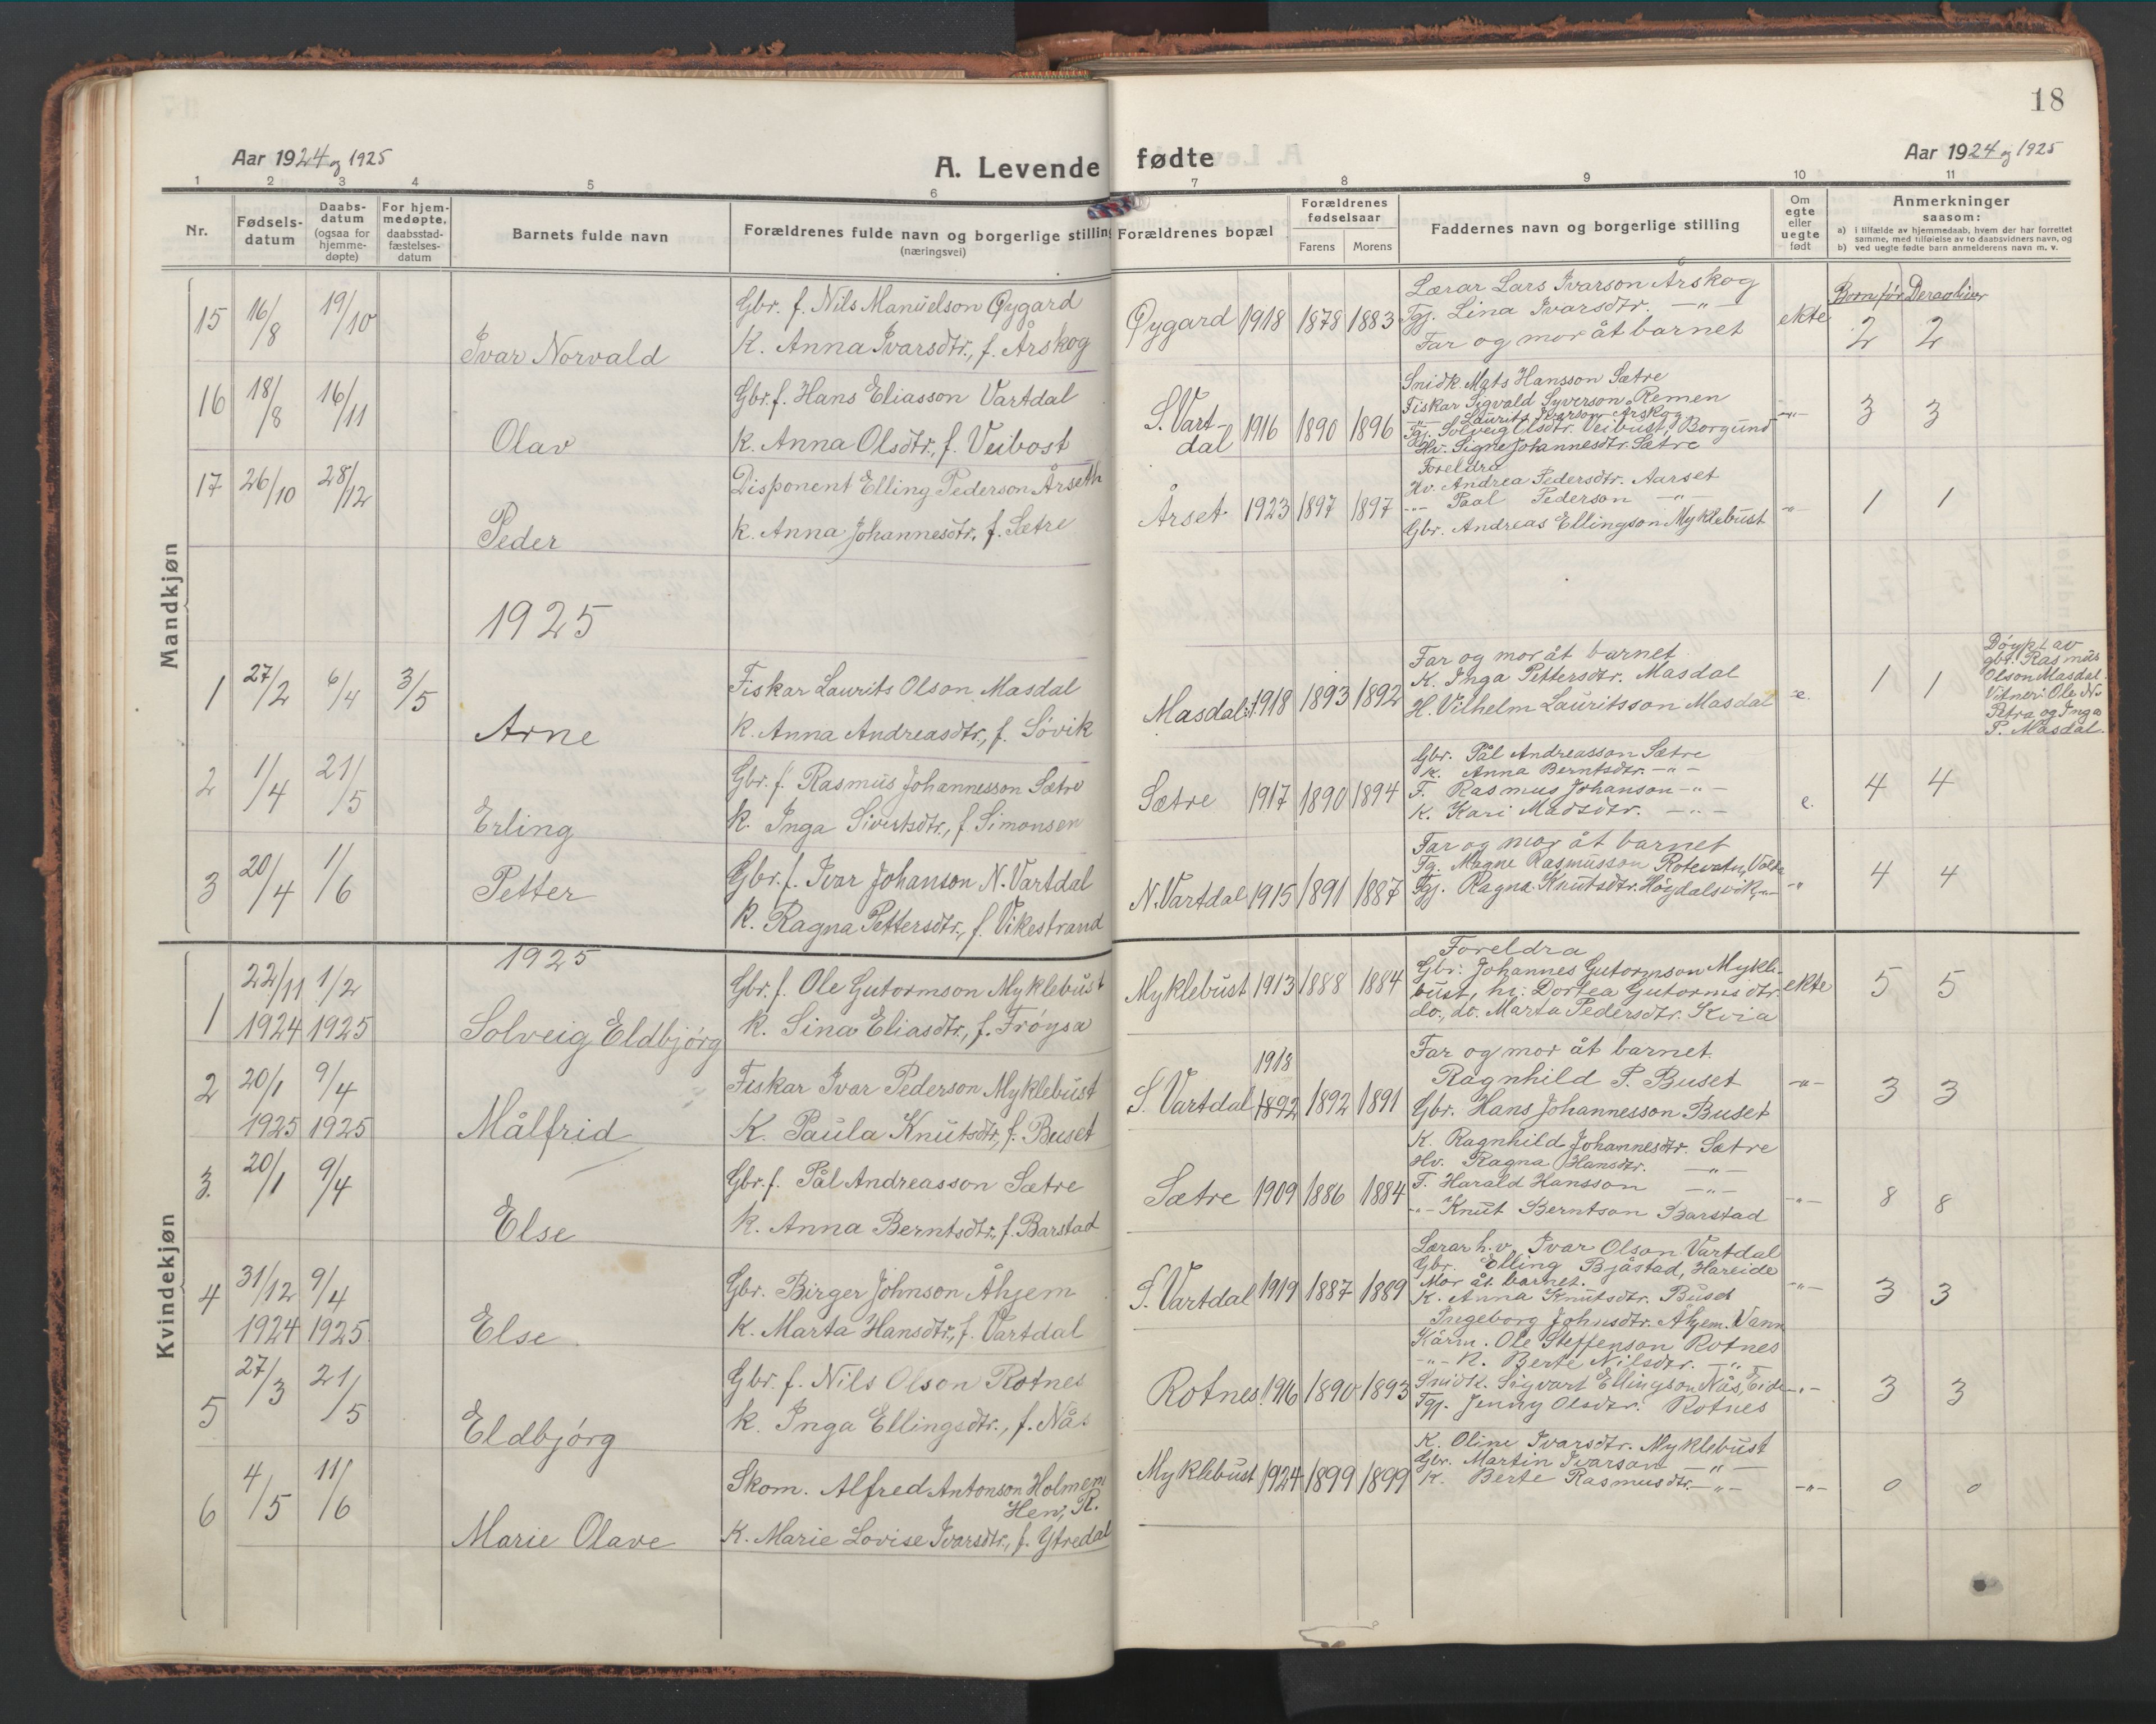 18
Aar 1924 og 1925
A. Levende fødte
Aar 1924 og 1925
1 2 3 4 5 6 7 8 9 10 11
Nr.
Fødsels-
datum
Daabs-
datum
(ogsaa for
hjemme-
døpte)
For hjem-
medøpte,
daabsstad-
fæstelses-
datum
Barnets fulde navn
Forældrenes fulde navn og borgerlige stilling
(næringsvei)
Forældrenes bopæl
Forældrenes
fødselsaar
Farens Morens
Faddernes navn og borgerlige stilling
Om
egte
eller
uegte
født
Anmerkninger
saasom:
a) i tilfælde av hjemmedaab, hvem der har forrettet
samme, med tilføielse av to daabsvidners navn, og
b) ved uegte fødte barn anmelderens navn m. v.
Mandkjøn
15 16/8 19/10
Ivar Norvald
Gbr. f. Nils Manuelson Øygard
K. Anna Ivarsdtr., f. Årskog
Øygard 1918 1878 1883
Lærar Lars Ivarson Årskog
Tgj. Lina Ivarsdtr. —"—
Far og mor åt barnet
ekte
Born før Derav liver
2 2
16 18/8 16/11
Olav
Gbr. f. Hans Eliasson Vartdal
K. Anna Olsdtr., f. Veibost
S. Vart-
dal 1916 1890 1896
Snidk. Mats Hansson Sætre
Fiskar Sigvald Syverson Remen
Laurits Ivarson Årskog
Tgj. Solveig Olsdtr. Veibust, Borgund
Hv. Signe Johannesdtr. Sætre
Foreldra
—"— 3 3
17 26/10 28/12
Peder
Disponent Elling Pederson Årseth
K. Anna Johannesdtr. f. Sætre
Årset 1923 1897 1897
Hv. Andrea Pedersdtr. Aarset
—"— Paal Pederson —"—
Gbr. Andreas Ellingson Myklebust
—"— 1 1
1925
1 27/2 6/4 3/5
Arne
Fiskar Laurits Olson Masdal
K. Anna Andreasdtr., f. Søvik
Masdal 1918 1893 1892
Far og mor åt barnet
K. Inga Pettersdtr. Masdal
H. Vilhelm Lauritsson Masdal
e. 1 1
Døypt av
gbr. Rasmus
Olson Masdal.
Vitner: Ole N.
Petra og Inga
P. Masdal.
2 1/4 21/5
Erling
Gbr. f. Rasmus Johannesson Sætre
K. Inga Sivertsdtr., f. Simonsen
Sætre 1917 1890 1894
Gbr. Pål Andreasson Sætre
K. Anna Berntsdtr. —"—
F. Rasmus Johanson —"—
K. Kari Madsdtr. —"—
e. 4 4
3 20/4 1/6
Petter
Gbr. f. Ivar Johanson N. Vartdal
K. Ragna Pettersdtr., f. Vikestrand
N. Vartdal 1915 1891 1887
Far og mor åt barnet
Tg. Magne Rasmusson Rotevatn, Volda
Tgj. Ragna Knutsdtr. Høgdalsvik, —"—
—"— 4 4
Kvindekjøn
1925
1 22/11 1/2
1924 1925
Solveig Eldbjørg
Gbr. f. Ole Gutormson Myklebust
K. Sina Eliasdtr., f. Frøysa
Myklebust 1913 1888 1884
Foreldra
Gbr. Johannes Gutormson Mykle-
bust, hv. Dortea Gutormsdtr.
do., do. Marta Pedersdtr. Kvia
ekte 5 5
2 20/1 9/4
1925 1925
Målfrid
Fiskar Ivar Pederson Myklebust
K. Paula Knutsdtr., f. Buset
1918
S. Vartdal 1892 1892 1891
Far og mor åt barnet.
Ragnhild P. Buset
Gbr. Hans Johannesson Buset
—"— 3 3
3. 20/1 9/4
Else
Gbr. f. Pål Andreasson Sætre
K. Anna Berntsdtr., f. Barstad
Sætre 1909 1886 1884
K. Ragnhild Johannesdtr. Sætre
Hv. Ragna Hansdtr. —"—
F. Harald Hansson —"—
—"— Knut Berntson Barstad
—"— 8 8
4 31/12 9/4
1924 1925.
Else
Gbr. Birger Johnson Åhjem
K. Marta Hansdtr., f. Vartdal
S. Vartdal 1919 1887 1889
Lærar h.v. Ivar Olson Vartdal
Gbr. Elling Bjåstad, Hareide
Mor åt barnet.
K. Anna Knutsdtr. Buset
Ingeborg Johnsdtr. Åhjem. Vann
—"— 3 3
5 27/3 21/5
Eldbjørg
Gbr. f. Nils Olson Rotnes
K. Inga Ellingsdtr., f. Nås
Rotnes 1916 1890 1893
Kårm. Ole Steffenson Rotnes
—"— K. Berte Nilsdtr. —"—
Snidk. Sigvart Ellingson Nås, Eide
Tgj. Jenny Olsdtr. Rotnes
—"— 3 3
6 4/5 11/6
Marie Olave
Skom. Alfred Antonson Holmem
Hen, R.
K. Marie Lovise Ivarsdtr., f. Ytredal
Myklebust 1924 1899 1899
K. Oline Ivarsdtr. Myklebust
Gbr. Martin Ivarson —"—
K. Berte Rasmusdtr. —"—
—"— 0 0